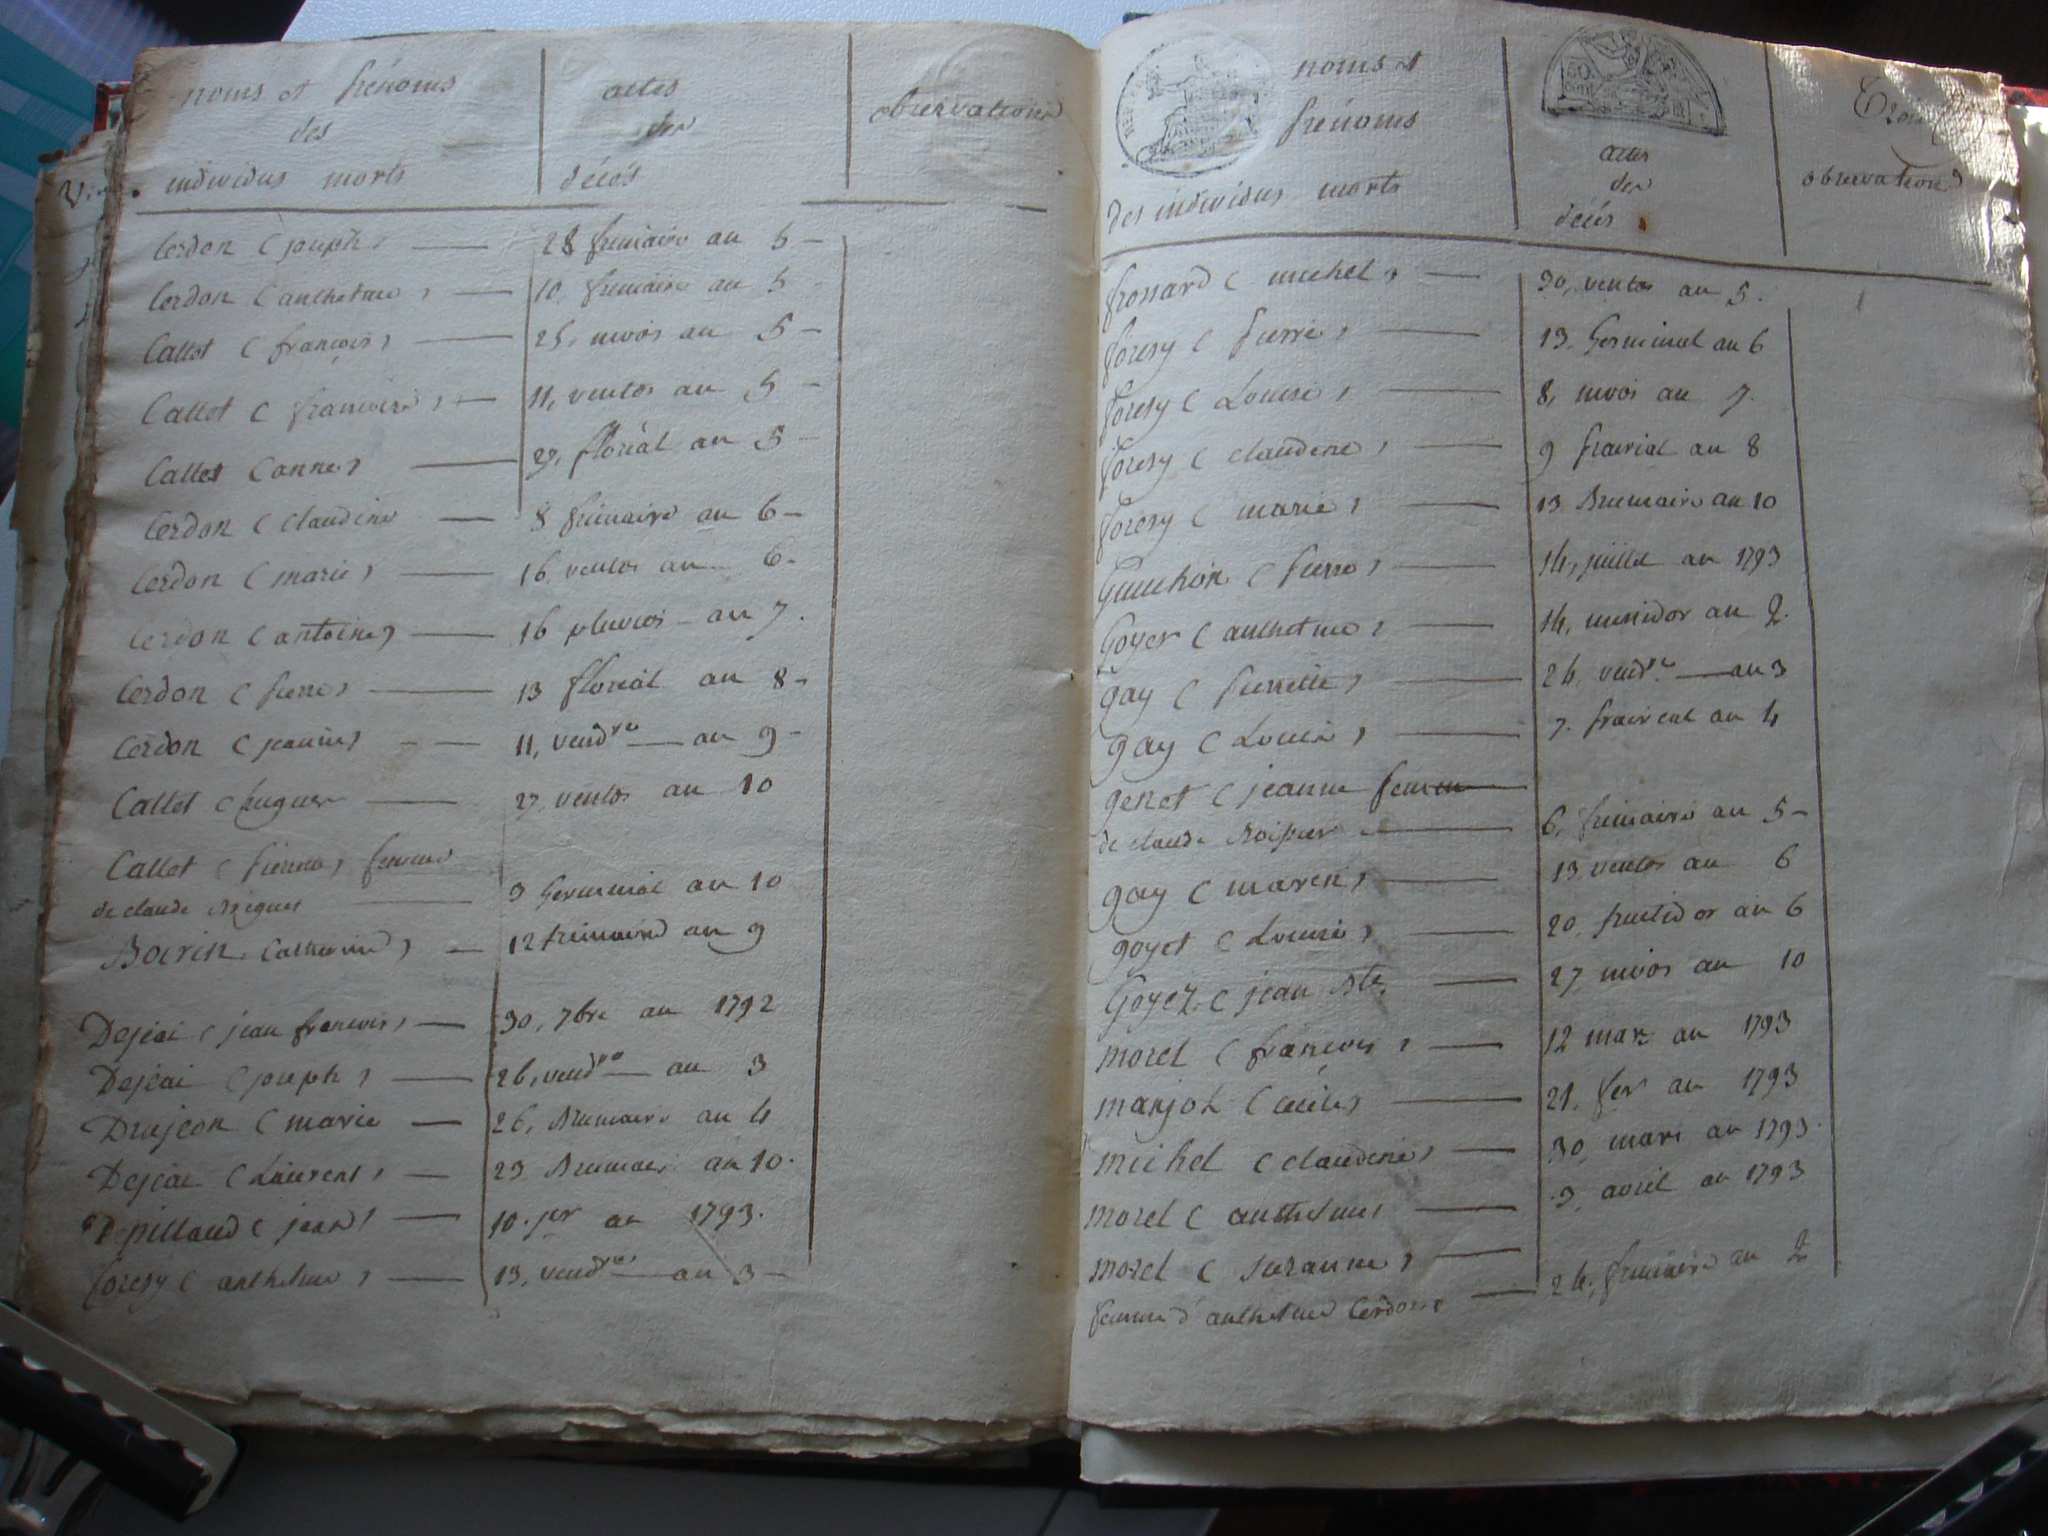 noms et prénoms
des
individus morts
actes
des
décés
observations
Cerdon (joseph) 28 frimaire an 5
Cerdon (anthelme) 10, frimaire an 5
Callet (françois) 25, nivos an 5
Callet (francoise) 11, ventos an 5
Callet (anne) 29, floréal an 5
Cerdon (claudine 8 frimaire an 6
Cerdon (marie) 16, ventos an 6.
Cerdon (antoine) 16 pluvios an 7.
Cerdon (pierre) 13 floréal an 8
Cerdon (jeanne) 11, vend.re an 9
Callet (hugues 27, ventos an 10
Callet (pierrette) femme
de claude 3 Germinal an 10
Boirin Catherine) 12 frimaire an 9
Dejeai (jean francois) 30, 7bre an 1792
Dejeai (joseph) 26, vend.re an 3
Drujeon (marie 26, Brumaire an 4
Dejeai (Laurent) 23 Brumaire an 10.
Depillaud (jean) 10. jer an 1793.
foresy (anthelme) 13, vend.re an 3
noms et
prénoms
des individus morts
actes
des
décés
observations
frossard (michel) 30, ventos an 5.
foresy (pierre) 13. Germinal an 6
foresy (Louise) 8, nivos an 7.
foresy (claudine) 9 prairial an 8
foresy (marie) 13 Brumaire an 10
Guichon (pierre) 14, juillet an 1793
Goyet (anthelme) 14, messidor an 2.
gay (pierrette) 26, vend.re an 3
gay (Louise) 7. prairial an 4
genet (jeanne femme
de claude 6, frimaire an 5
gay (marin) 13, ventos an 6
goyet (Louise) 20, fructidor an 6
Goyet (jean Bte. 27 nivos an 10
morel (francois) 12 mars an 1793
marjol (cecile) 21, fer an 1793
michel (claudine) 30, mars an 1793.
morel (anthelme) 3, avril an 1793
morel (suzanne)
femme d'anthelme Cerdon 24, frimaire an 2